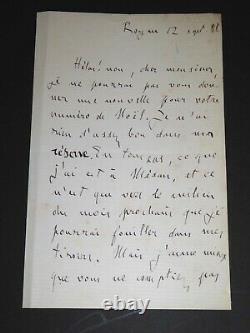 Royan 12 sept 86
Hélas! non, cher monsieur,
je ne pourrai pas vous don-
ner une nouvelle pour votre
numéro de Noël. Je n'ai
rien d'assez bon dans ma
réserve. En tout cas, ce que
j'ai est à Médan, et ce
n'est que vers le milieu
du mois prochain que je
pourrai fouiller dans mes
tiroirs. Mais j'aime mieux
que vous ne comptiez pas